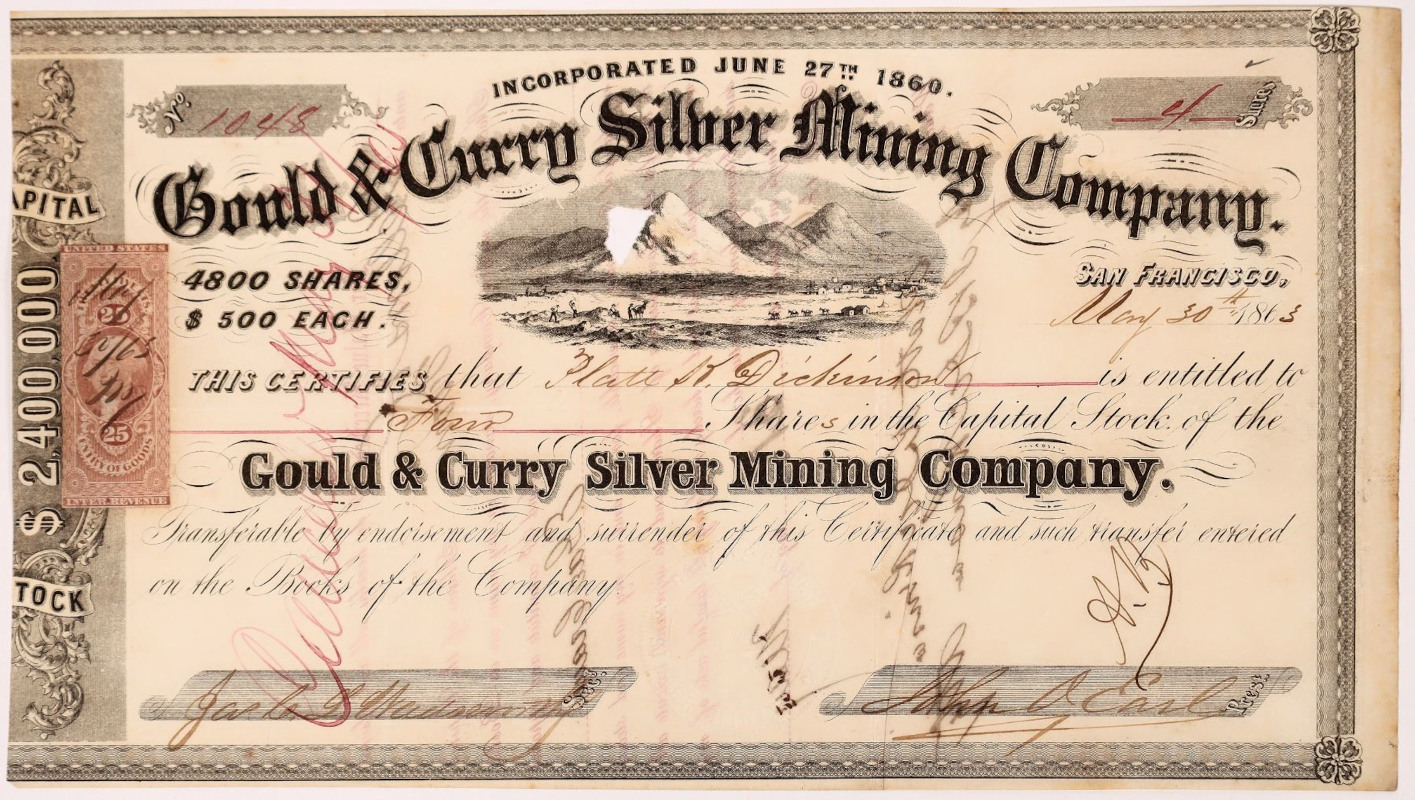 INCORPORATED JUNE 27TH 1860.
No. 1048
4 Shares
Gould & Curry Silver Mining Company.
4800 SHARES,
$ 500 EACH.
SAN FRANCISCO,
May 30th 1863
THIS CERTIFIES that Platt K. Dickinson is entitled to
Four Shares in the Capital Stock of the
Gould & Curry Silver Mining Company.
Transferable by endorsement and surrender of this Certificate and such transfer entered
on the Books of the Company.
Secy.
John O. Earl Prest.
APITAL
$ 2,400,000
TOCK
UNITED STATES
25
25
ENTRY OF GOODS
INTER REVENUE